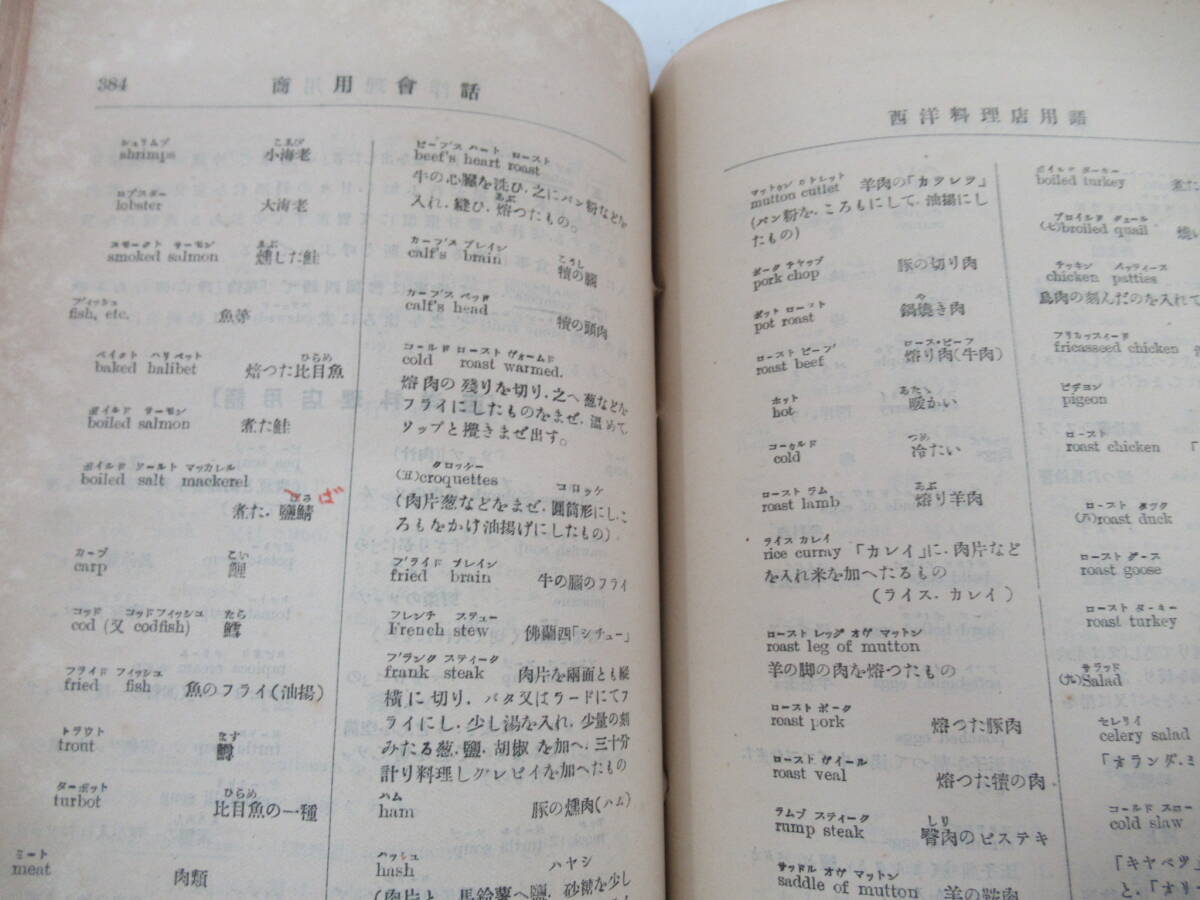 384 商用會話
シュリムプ こえび
shrimps 小海老
ロブスター
lobster 大海老
スモークト サーモン いぶ
smoked salmon 燻した鮭
フィッシュ
fish, etc. 魚等
ベイクト ハリベット ひらめ
baked halibet 焙つた比目魚
ボイルド サーモン
boiled salmon 煮た鮭
ボイルド ソールト マッカレル
boiled salt mackerel
ば
煮た・鹽鯖
カープ こい
carp 鯉
コッド コッドフィッシュ たら
cod (又 codfish) 鱈
フライド フィッシュ
fried fish 魚のフライ(油揚)
トラウト ます
tront 鱒
ターボット ひらめ
turbot 比目魚の一種
ミート
meat 肉類
ビーフス ハート ロースト
beef's heart roast
牛の心臟を洗ひ、之にパン粉などを
入れ、縫ひ、熔つたもの。
カーブス ブレイン こうし
calf's brain 犢の腦
カーブス ヘッド
calf's head 犢の頭肉
コールド ロースト ヴォームド
cold roast warmed.
熔肉の殘りを切り、之へ葱などを
フライにしたものをまぜ、溫めて、
ソップと攪きまぜ出す。
クロッシー
(五)croquettes コロッケ
(肉片葱などをまぜ、圓筒形にしこ
ろもをかけ油揚げにしたもの)
フライド ブレイン
fried brain 牛の腦のフライ
フレンチ スデュー
French stew 佛蘭西「シチュー」
フランク スティーク
frank steak 肉片を兩面とも縱
橫に切り、バタ又はラードにてフ
ライにし、少し湯を入れ、少量の刻
みたる葱、鹽、胡椒を加へ、三十分
計り料理しグレビイを加へたもの
ハム
ham 豚の燻肉(ハム)
ハッシュ
hash ハヤシ
(肉片と馬鈴薯へ鹽、砂糖を少し
西洋料理店用語
マットゥン カトレット
mutton cutlet 羊肉の「カツレツ」
(パン粉を、ころもにして、油揚にし
たもの)
ポーク チャップ
pork chop 豚の切り肉
ポット ロースト や
pot roast 鍋燒き肉
ロースト ビーフ ロース・ビーフ
roast beef 熔り肉(牛肉)
ホット あたゝ
hot 暖かい
コーカルド つめ
cold 冷たい
ロースト ラム あぶ
roast lamb 熔り羊肉
ライス カレイ
rice curray 「カレイ」に、肉片など
を入れ米を加へたるもの
(ライス、カレイ)
ロースト レッグ オヴ マットン
roast leg of mutton
羊の脚の肉を熔つたもの
ロースト ポーク
roast pork 熔つた豚肉
ロースト ヴイール
roast veal 熔つた犢の肉
ラムプ スティーク しり
rump steak 臀肉のビステキ
サッドル オヴ マットン
saddle of mutton 羊の鞍肉
ボイルド ターキー
boiled turkey 煮た
ブロイルド クェール
(七)broiled quail 燒い
チッキン パッティース
chicken patties
鳥肉の刻んだのを入れて
フリカッスィード
fricasseed chicken
ピヂョン
pigeon
ロースト
roast chicken 「
ロースト ダック
(八)roast duck
ロースト グース
roast goose
ロースト ターキー
roast turkey
サラッド
(九)Salad
セレリイ
celery salad
「オランダ、ミ
コールド スロー
cold slaw
「キヤベツ
と、「オリー